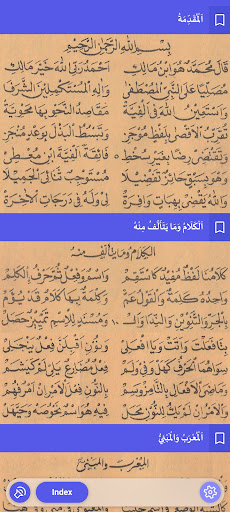 اَلْمُقَدِّمَةُ
بسم الله الرحمن الرحيم
قَالَ مُحَمَّدٌ هُوَ ابْنُ مَالِكِ أَحْمَدُ رَبِّي اللهَ خَيْرَ مَالِكِ
مُصَلِّيًا عَلَى النَّبِيِّ الْمُصْطَفَى وَآلِهِ الْمُسْتَكْمِلِينَ الشَّرَفَا
وَأَسْتَعِينُ اللهَ فِي أَلْفِيَّهْ مَقَاصِدُ النَّحْوِ بِهَا مَحْوِيَّهْ
تُقَرِّبُ الْأَقْصَى بِلَفْظٍ مُوجَزِ وَتَبْسُطُ الْبَذْلَ بِوَعْدٍ مُنْجَزِ
وَتَقْتَضِي رِضًا بِغَيْرِ سُخْطِ فَائِقَةً أَلْفِيَّةَ ابْنِ مُعْطِي
وَهُوَ بِسَبْقٍ حَائِزٌ تَفْضِيلَا مُسْتَوْجِبٌ ثَنَائِيَ الْجَمِيلَا
وَاللهُ يَقْضِي بِهِبَاتٍ وَافِرَهْ لِي وَلَهُ فِي دَرَجَاتِ الْآخِرَهْ
اَلْكَلَامُ وَمَا يَتَأَلَّفُ مِنْهُ
الكلام وما يتألف منه
كَلَامُنَا لَفْظٌ مُفِيدٌ كَاسْتَقِمْ وَاسْمٌ وَفِعْلٌ ثُمَّ حَرْفٌ الْكَلِمْ
وَاحِدُهُ كَلِمَةٌ وَالْقَوْلُ عَمْ وَكَلْمَةٌ بِهَا كَلَامٌ قَدْ يُؤَمْ
بِالْجَرِّ وَالتَّنْوِينِ وَالنِّدَا وَأَلْ ١٠ وَمُسْنَدٍ لِلْاِسْمِ تَمْيِيزٌ حَصَلْ
بِتَا فَعَلْتَ وَأَتَتْ وَيَا افْعَلِي وَنُونِ أَقْبِلَنَّ فِعْلٌ يَنْجَلِي
سِوَاهُمَا الْحَرْفُ كَهَلْ وَفِي وَلَمْ فِعْلٌ مُضَارِعٌ يَلِي لَمْ كَيَشَمْ
وَمَاضِيَ الْأَفْعَالِ بِالتَّا مِزْ وَسِمْ بِالنُّونِ فِعْلَ الْأَمْرِ إِنْ أَمْرٌ فُهِمْ
وَالْأَمْرُ إِنْ لَمْ يَكُ لِلنُّونِ مَحَلْ فِيهِ هُوَ اسْمٌ نَحْوُ صَهْ وَحَيَّهَلْ
اَلْمُعْرَبُ وَالْمَبْنِيُّ
المعرب والمبني
Index